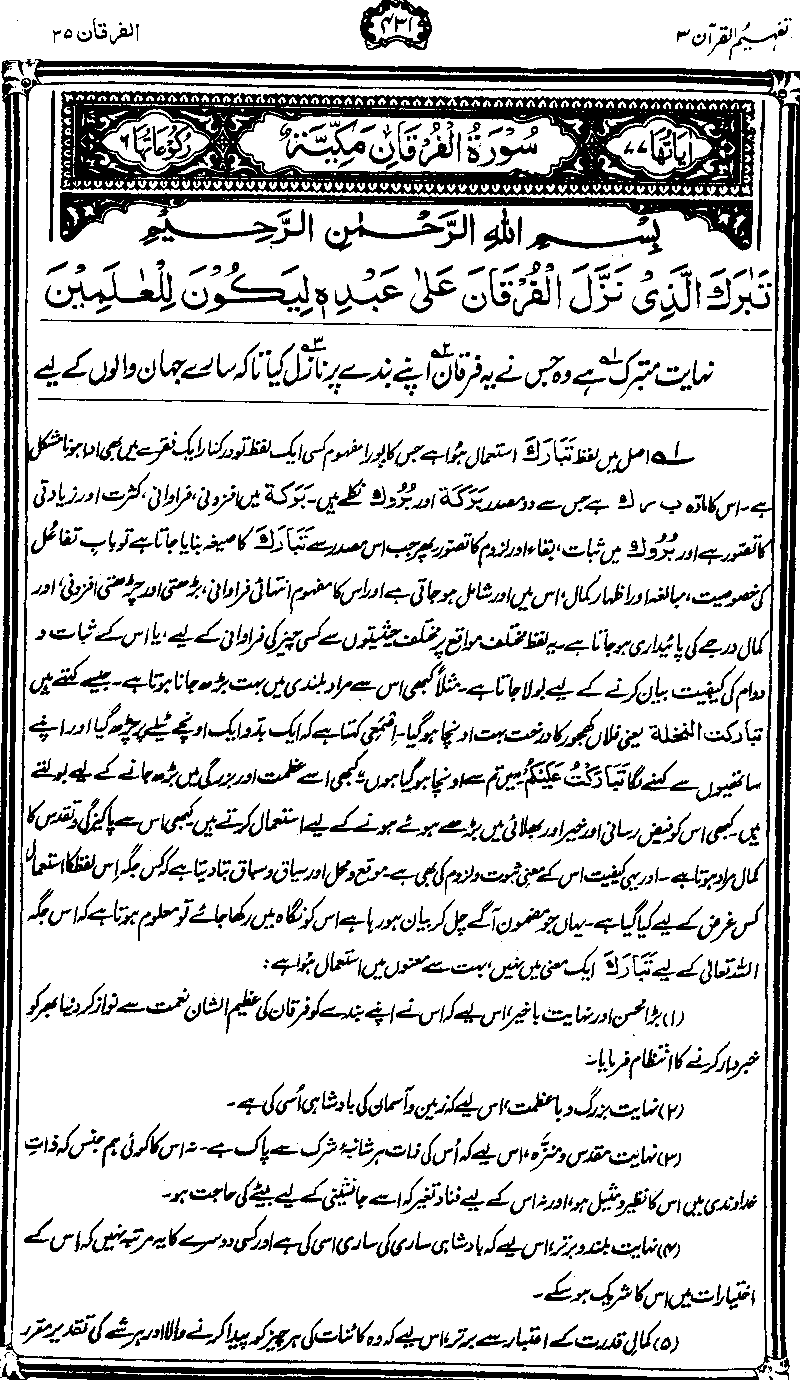 تفہیم القرآن ۳
۴۳۱
الفرقان ۲۵
اٰیاتہا ۷۷
سُوْرَةُ الْفُرْقَانِ مَكِّيَّةٌ
رکوعاتہا ۶
بِسْمِ اللهِ الرَّحْمٰنِ الرَّحِيْمِ
تَبٰرَكَ الَّذِیْ نَزَّلَ الْفُرْقَانَ عَلٰی عَبْدِهٖ لِیَكُوْنَ لِلْعٰلَمِیْنَ
نہایت متبرک۱؎ ہے وہ جس نے یہ فرقان۲؎ اپنے بندے پر نازل۳؎ کیا تاکہ سارے جہان والوں کے لیے
۱؎ اصل میں لفظ تَبَارَكَ استعمال ہُوا ہے جس کا پورا مفہوم کسی ایک لفظ تو درکنار ایک فقرے میں بھی ادا ہونا مشکل
ہے۔ اس کا مادّہ ب ر ك ہے جس سے دو مصدر بَرَكَة اور بُرُوك نکلے ہیں۔ بَرَكَة میں افزونی، فراوانی، کثرت اور زیادتی
کا تصور ہے اور بُرُوك میں ثبات، بقاء اور لزوم کا تصور۔ پھر جب اس مصدر سے تَبَارَكَ کا صیغہ بنایا جاتا ہے تو باب تفاعُل
کی خصوصیت، مبالغہ اور اظہار کمال، اس میں اور شامل ہو جاتی ہے اور اس کا مفہوم انتہائی فراوانی، بڑھتی اور چڑھتی افزونی، اور
کمال درجے کی پائیداری ہو جاتا ہے۔ یہ لفظ مختلف مواقع پر مختلف حیثیتوں سے کسی چیز کی فراوانی کے لیے، یا اس کے ثبات و
دوام کی کیفیت بیان کرنے کے لیے بولا جاتا ہے۔ مثلاً کبھی اس سے مراد بلندی میں بہت بڑھ جانا ہوتا ہے۔ جیسے کہتے ہیں
تباركت النخلة یعنی فلاں کھجور کا درخت بہت اونچا ہو گیا۔ اصمعی کہتا ہے کہ ایک بدو ایک اونچے ٹیلے پر چڑھ گیا اور اپنے
ساتھیوں سے کہنے لگا تَبَارَكْتُ عَلَيْكُمْ میں تم سے اونچا ہو گیا ہوں۔ کبھی اسے عظمت اور بزرگی میں بڑھ جانے کے لیے بولتے
ہیں۔ کبھی اس کو فیض رسانی اور خیر اور بھلائی میں بڑھے ہوئے ہونے کے لیے استعمال کرتے ہیں۔ کبھی اس سے پاکیزگی و تقدس کا
کمال مراد ہوتا ہے۔ اور یہی کیفیت اس کے معنی ثبوت و لزوم کی بھی ہے۔ موقع و محل اور سیاق و سباق بتا دیتا ہے کہ کس جگہ اِس لفظ کا استعمال
کس غرض کے لیے کیا گیا ہے۔ یہاں جو مضمون آگے چل کر بیان ہو رہا ہے اس کو نگاہ میں رکھا جائے تو معلوم ہوتا ہے کہ اس جگہ
اللہ تعالٰی کے لیے تَبَارَكَ ایک معنی میں نہیں، بہت سے معنوں میں استعمال ہُوا ہے:
(۱) بڑا محسن اور نہایت باخیر، اس لیے کہ اس نے اپنے بندے کو فرقان کی عظیم الشان نعمت سے نواز کر دنیا بھر کو
خبردار کرنے کا انتظام فرمایا۔
(۲) نہایت بزرگ و با عظمت، اس لیے کہ زمین و آسمان کی بادشاہی اُسی کی ہے۔
(۳) نہایت مقدس و منزّہ، اس لیے کہ اُس کی ذات ہر شائبۂ شرک سے پاک ہے۔ نہ اس کا کوئی ہم جنس کہ ذاتِ
خداوندی میں اس کا نظیر و مثیل ہو، اور نہ اس کے لیے فنا و تغیر کہ اسے جانشینی کے لیے بیٹے کی حاجت ہو۔
(۴) نہایت بلند و برتر، اس لیے کہ بادشاہی ساری کی ساری اسی کی ہے اور کسی دوسرے کا یہ مرتبہ نہیں کہ اس کے
اختیارات میں اس کا شریک ہو سکے۔
(۵) کمالِ قدرت کے اعتبار سے برتر، اس لیے کہ وہ کائنات کی ہر چیز کو پیدا کرنے والا اور ہر شے کی تقدیر مقرر